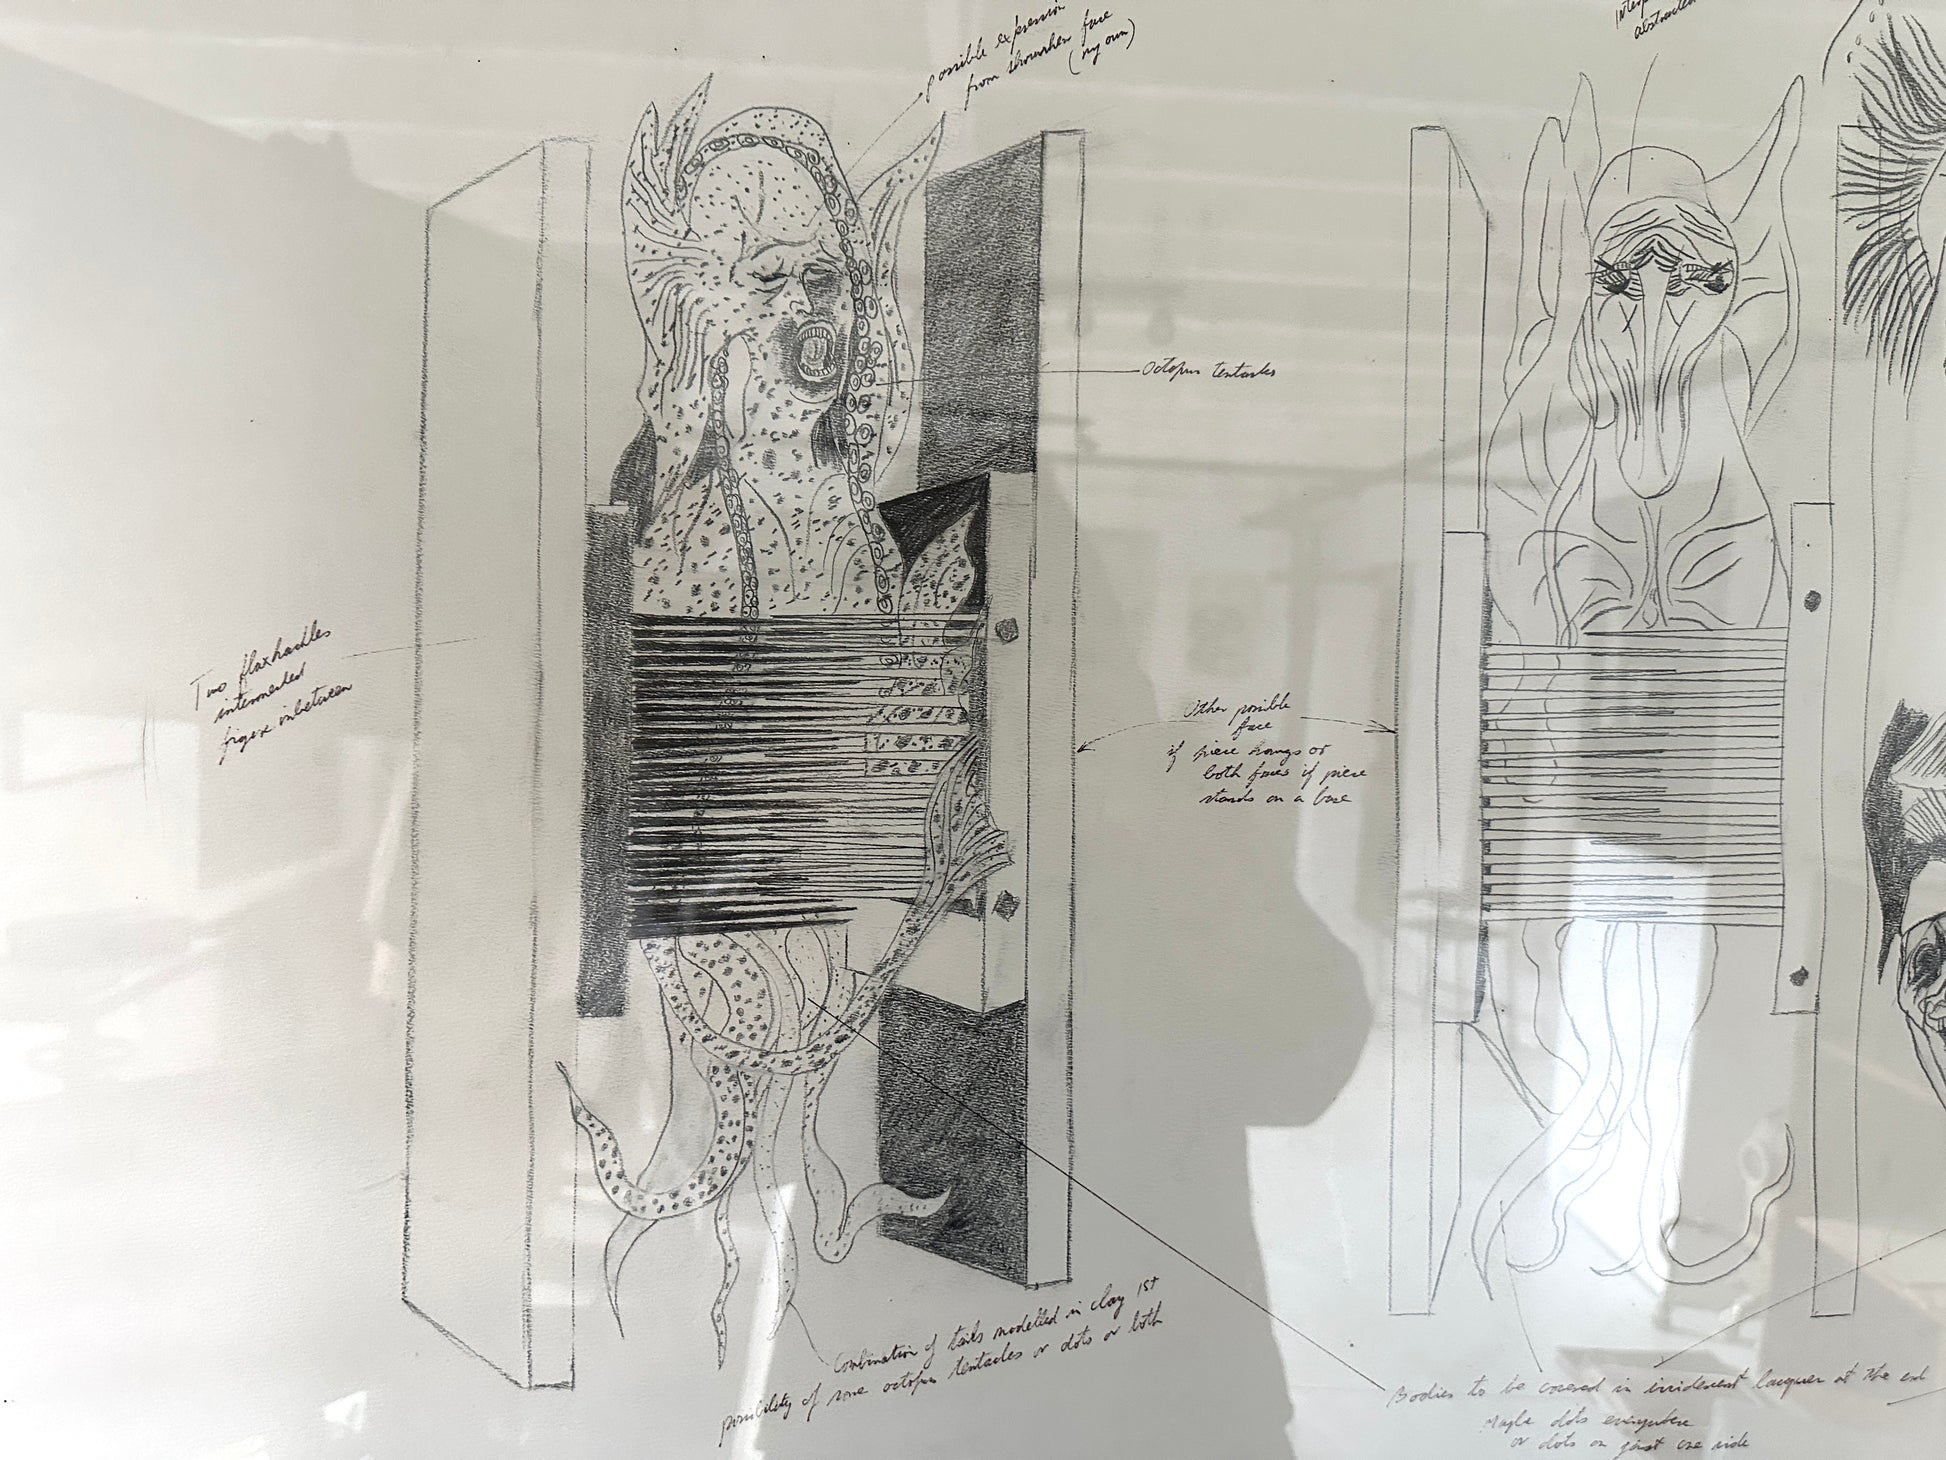 possible expression
from shrunken face
(my own)
abstracted
Octopus tentacles
Two flaxhackles
interworked
figure inbetween
Other possible
face
if piece hangs or
both faces if piece
stands on a base
Combination of tails modelled in clay 1st
possibility of some octopus tentacles or dots or both
Bodies to be covered in irridescent lacquer at the end
Maybe dots everywhere
or dots on just one side